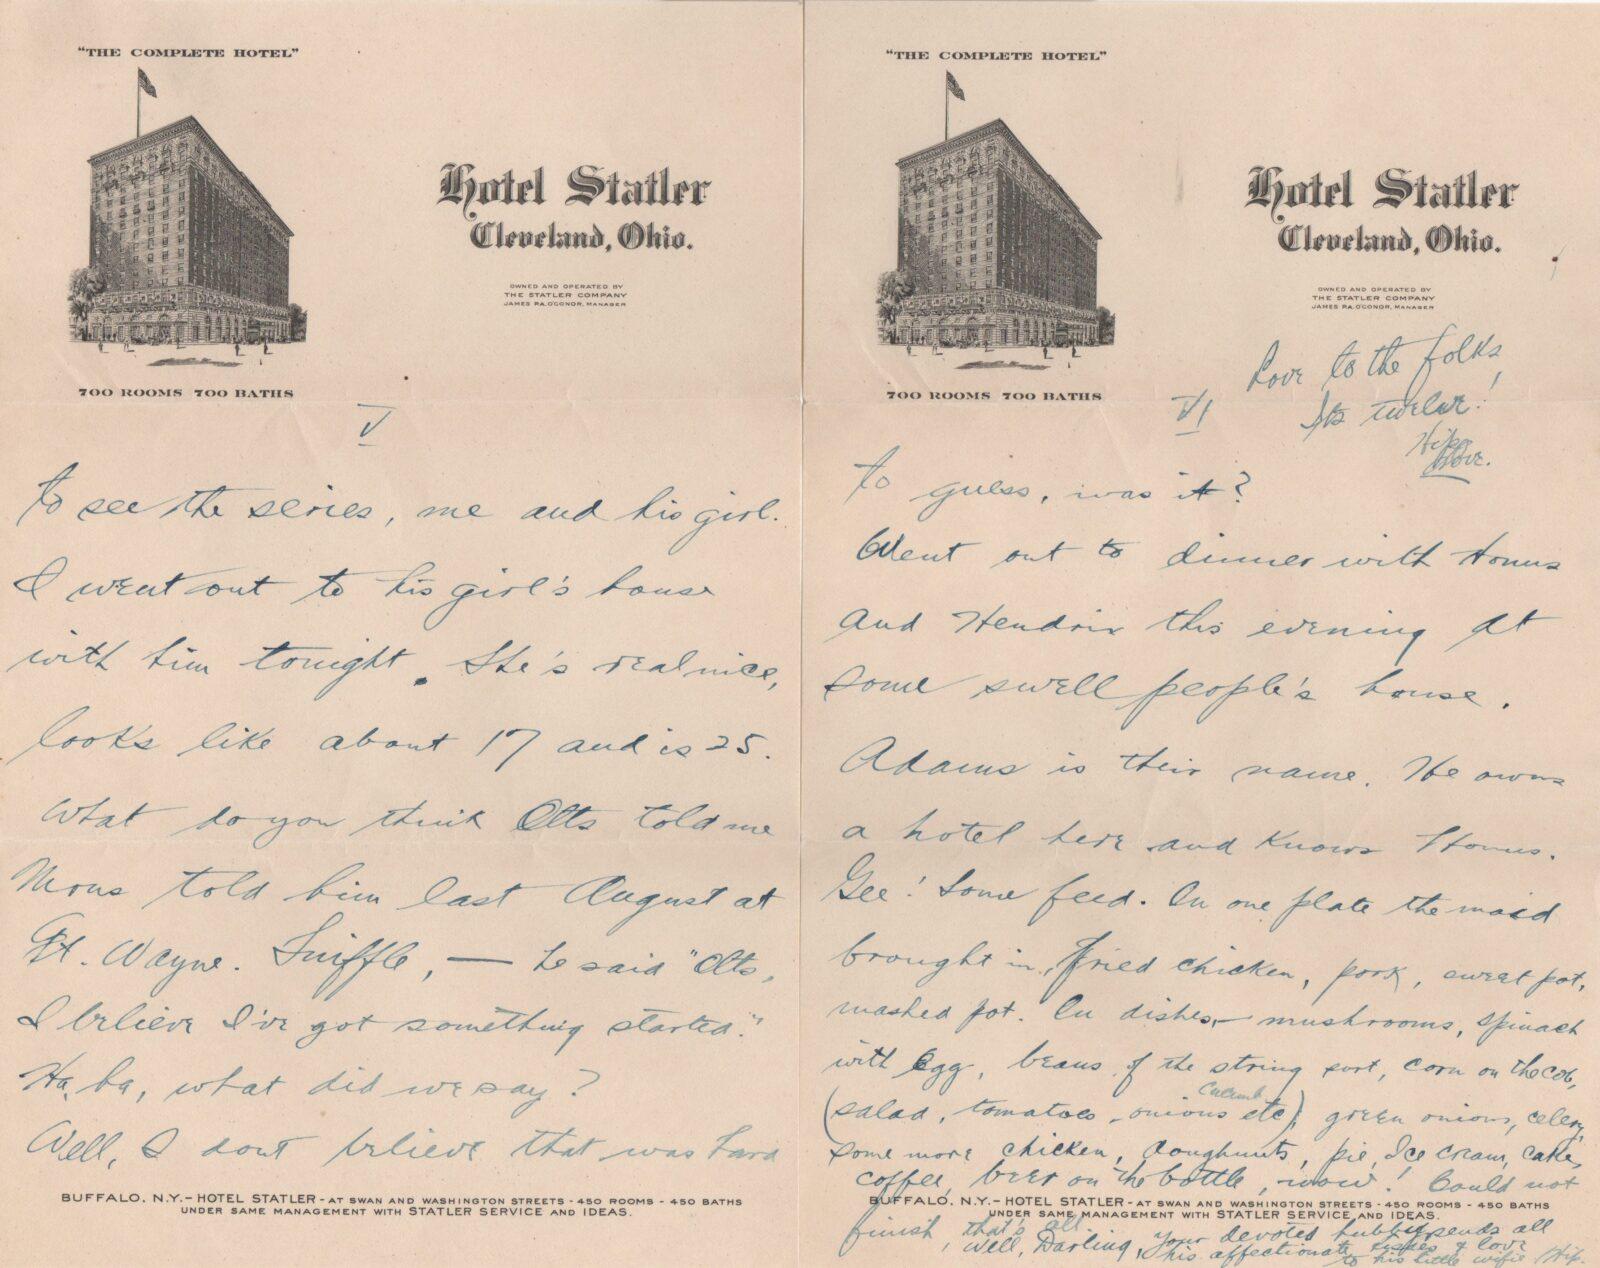 "THE COMPLETE HOTEL"
Hotel Statler
Cleveland, Ohio.
OWNED AND OPERATED BY
THE STATLER COMPANY
JAMES P.A. O'CONOR, MANAGER
700 ROOMS 700 BATHS
V
to see the series, me and his girl.
I went out to his girl's house
with him tonight. She's real nice,
looks like about 17 and is 25.
What do you think Otts told me
Mons told him last August at
Ft. Wayne. Sniffle, — he said "Otts,
I believe I've got something started."
Ha, ha, what did we say?
Well, I dont believe that was hard
BUFFALO, N.Y. – HOTEL STATLER - AT SWAN AND WASHINGTON STREETS - 450 ROOMS - 450 BATHS
UNDER SAME MANAGEMENT WITH STATLER SERVICE AND IDEAS.
"THE COMPLETE HOTEL"
Hotel Statler
Cleveland, Ohio.
OWNED AND OPERATED BY
THE STATLER COMPANY
JAMES P.A. O'CONOR, MANAGER
700 ROOMS 700 BATHS
Love to the folks
Its twelve!
Hip
Love.
VI
to guess, was it?
Went out to dinner with Honus
and Hendrix this evening at
some swell people's house.
Adams is their name. He owns
a hotel here and knows Honus.
Gee! Some feed. On one plate the maid
brought in, fried chicken, pork, sweet pot,
mashed pot. In dishes, – mushrooms, spinach
with egg, beans of the string sort, corn on the cob,
(salad, tomatoes, onions etc), green onions, celery,
some more chicken, doughnuts, pie, Ice cream, cake,
coffee, beer on the bottle, wow! Could not
BUFFALO, N.Y. – HOTEL STATLER - AT SWAN AND WASHINGTON STREETS - 450 ROOMS - 450 BATHS
UNDER SAME MANAGEMENT WITH STATLER SERVICE AND IDEAS.
finish, that's all
Well, Darling, your devoted hubby sends all
his affectionate kisses & love
to his little wifie Hip.